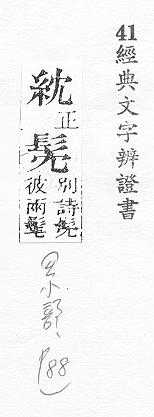 41經典文字辨證書
紞正
髧別詩髧
彼兩髦
小部